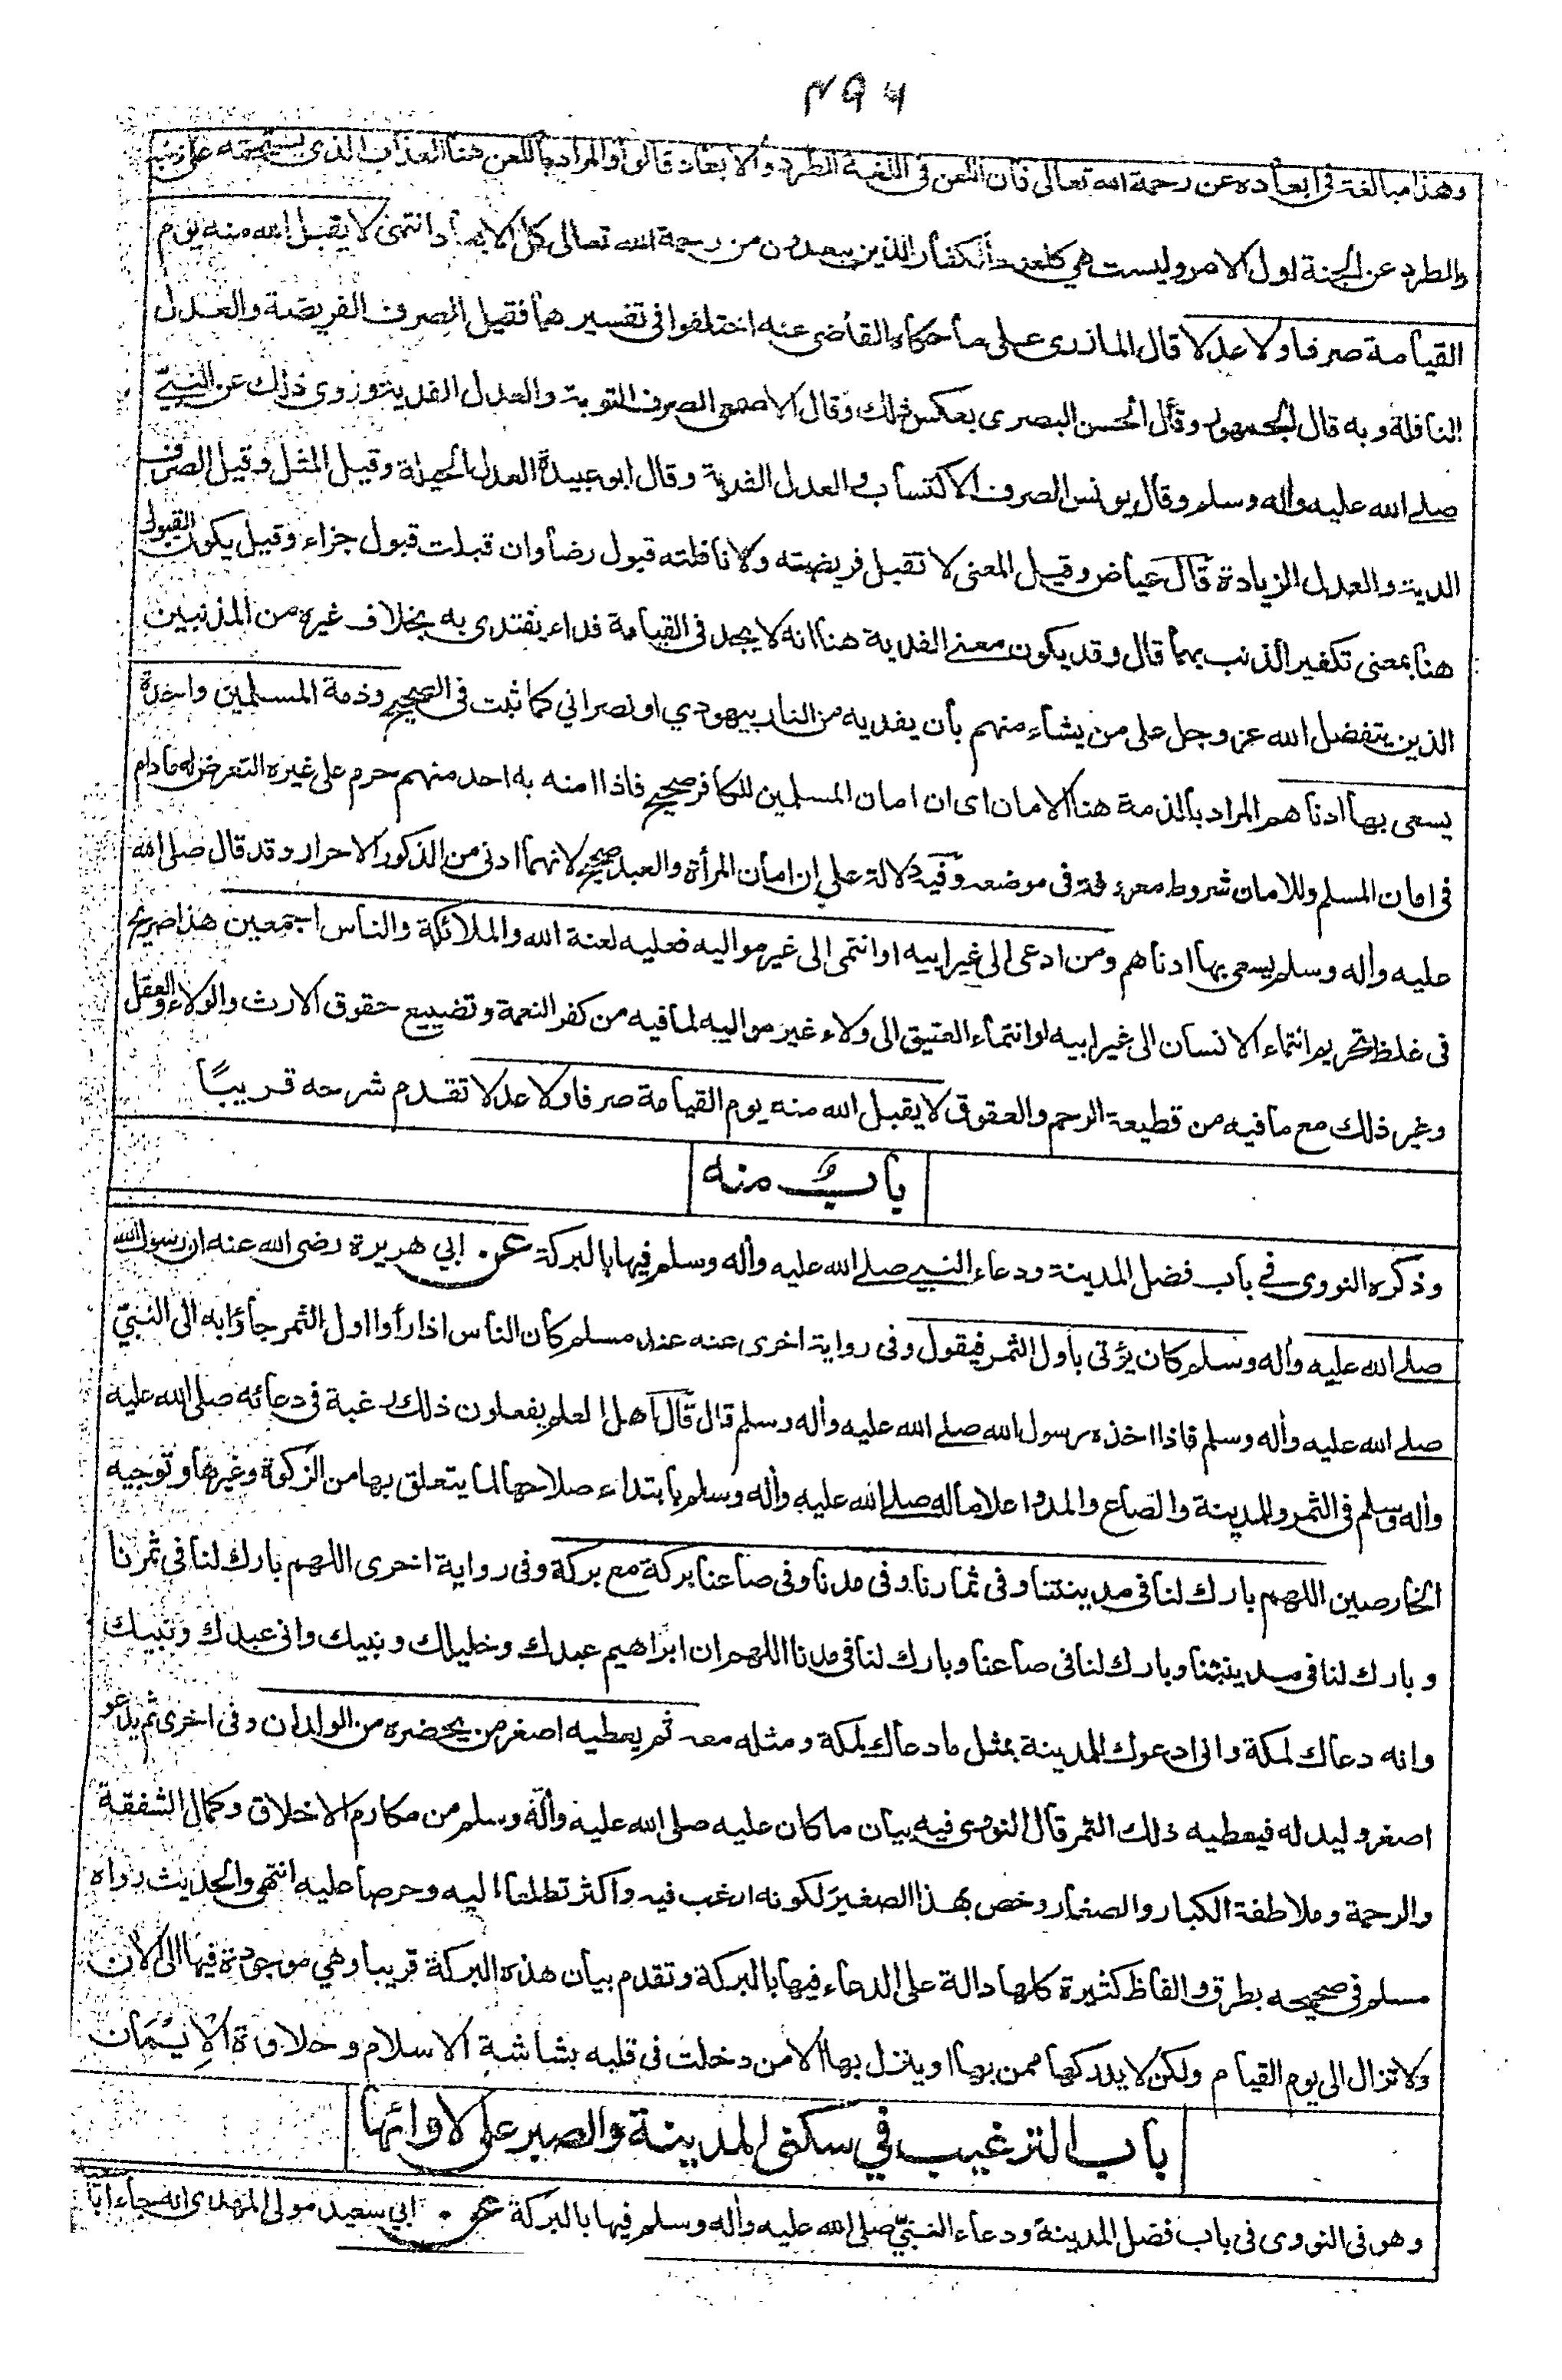 ۴۹۶
وهذا مبالغة في ابعاده عن رحمة الله تعالى فان اللعن في اللغة الطرد والابعاد قالوا والمراد باللعن هنا العذاب الذى يستحقه على ذنبه
والطرد عن الجنة اول الامر وليست هي كلعنة الكفار الذين يبعدون من رحمة الله تعالى كل الابعاد انتهى لا يقبل الله منه يوم
القيامة صرفا ولا عدلا قال المازرى على ما حكاه القاضى عنه اختلفوا فى تفسيرهما فقيل الصرف الفريضة والعدل
النافلة وبه قال الجمهور وقال الحسن البصرى بعكس ذلك وقال الاصمعى الصرف التوبة والعدل الفدية وروى ذلك عن النبيّ
صلے الله عليه واٰله وسلم وقال يونس الصرف الاكتساب والعدل الفدية وقال ابو عبيدة العدل الحيلة وقيل المثل وقيل الصرف
الدية والعدل الزيادة قال عياض وقيل المعنى لا تقبل فريضته ولا نافلته قبول رضا وان قبلت قبول جزاء وقيل يكون القبول
هنا بمعنى تكفير الذنب بهما قال وقد يكون معنى الفدية هنا انه لا يجد فى القيامة فداء يفتدى به بخلاف غيره من المذنبين
الذين يتفضل الله عز وجل على من يشاء منهم بأن يفديه من النار بيهودي او نصراني كما ثبت فى الصحيح وذمة المسلمين واحدة
يسعى بها ادناهم المراد بالذمة هنا الامان اى ان امان المسلمين للكافر صحيح فاذا امنه به احد منهم حرم على غيره التعرض له مادام
فى امان المسلم وللامان شروط معروفة فى موضعه وفيه دلالة على ان امان المرأة والعبد صحيح لانهما ادنى من الذكور الاحرار وقد قال صلى الله
عليه واٰله وسلم يسعى بها ادناهم ومن ادعى الى غير ابيه او انتمى الى غير مواليه فعليه لعنة الله والملائكة والناس اجمعين هذا صريح
فى غلظ تحريم انتماء الانسان الى غير ابيه او انتماء العتيق الى ولاء غير مواليه لما فيه من كفر النعمة وتضييع حقوق الارث والولاء والعقل
وغير ذلك مع ما فيه من قطيعة الرحم والعقوق لا يقبل الله منه يوم القيامة صرفا ولا عدلا تقدم شرحه قريبًا
بابٌ منه
وذكره النووى فے باب فضل المدينة ودعاء النبي صلے الله عليه واٰله وسلم فيها بالبركة عن ابي هريرة رضى الله عنه ان رسول الله
صلے الله عليه واٰله وسلم كان يؤتى بأول الثمر فيقول وفى رواية اخرى عنه عند مسلم كان الناس اذا رأوا اول الثمر جاؤا به الى النبيّ
صلے الله عليه واٰله وسلم فاذا اخذه رسول الله صلے الله عليه واٰله وسلم قال قال اهل العلم يفعلون ذلك رغبة فى دعائه صلى الله عليه
واٰله وسلم فى الثمر والمدينة والصاع والمد واعلاما له صلے الله عليه واٰله وسلم بابتداء صلاحها لما يتعلق بها من الزكوة وغيرها وتوجيه
الخارصين اللهم بارك لنا فى مدينتنا وفى ثمارنا وفى مدنا وفى صاعنا بركة مع بركة وفى رواية اخرى اللهم بارك لنا فى ثمرنا
وبارك لنا فى مدينتنا وبارك لنا فى صاعنا وبارك لنا فى مدنا اللهم ان ابراهيم عبدك وخليلك ونبيك وانى عبدك ونبيك
وانه دعاك لمكة وانى ادعوك للمدينة بمثل ما دعاك لمكة ومثله معه ثم يعطيه اصغر من يحضره من الولدان وفى اخرى ثم يدعو
اصغر وليد له فيعطيه ذلك الثمر قال النووى فيه بيان ما كان عليه صلى الله عليه واٰله وسلم من مكارم الاخلاق وكمال الشفقة
والرحمة وملاطفة الكبار والصغار وخص بهذا الصغير لكونه ارغب فيه واكثر تطلعا اليه وحرصا عليه انتهى والحديث رواه
مسلم فى صحيحه بطرق والفاظ كثيرة كلها دالة على الدعاء فيها بالبركة وتقدم بيان هذه البركة قريبا وهي موجودة فيها الى الاٰن
ولا تزال الى يوم القيام ولكن لا يدركها ممن بها او ينزل بها الا من دخلت فى قلبه بشاشة الاسلام وحلاوة الْاِيْمَان
باب الترغيب في سكنى المدينة والصبر على لاوائها
وهو فى النووى فى باب فضل المدينة ودعاء النبيّ صلى الله عليه واٰله وسلم فيها بالبركة عن ابي سعيد مولى المهدى انه جاء ابا